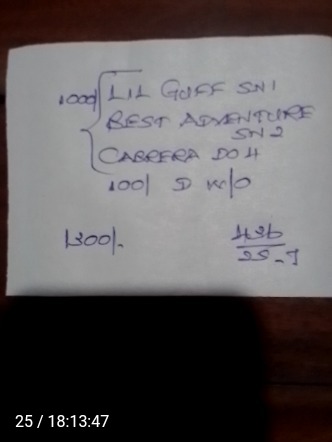 1000/ LIL GUFF SN1
BEST ADVENTURE
SN2
CABRERA DO4
100/ D W/O
1300/-
436
25-J
25 / 18:13:47